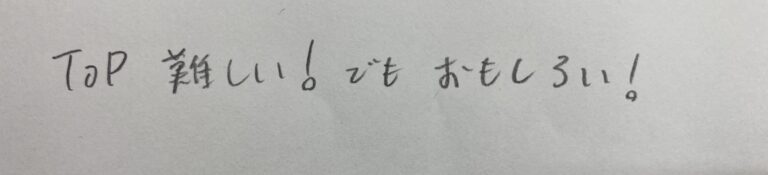 ToP 難しい! でも おもしろい!